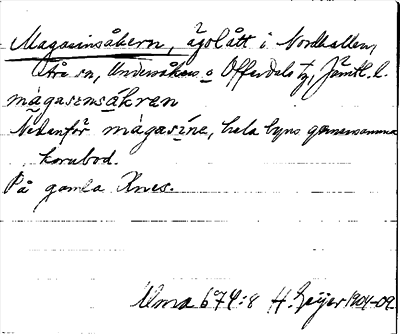 Magasinsåkern, ägolått i Nordhallen,
Åre sn, Undersåkers o Offerdals tg, Jämtl. l.
màgasensákren
Nedanför màgasíne, hela byns gemensamma
kornbod.
På gamla Knes.
Ulma 674:8 H. Geijer 1904-09.